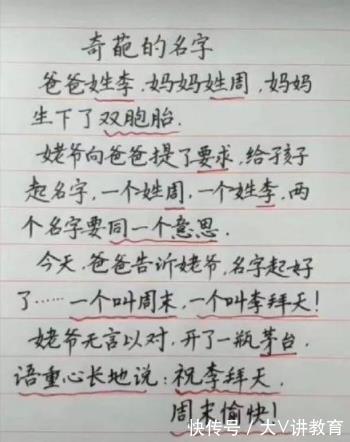 奇葩的名字
爸爸姓李，妈妈姓周，妈妈
生下了双胞胎.
姥爷向爸爸提了要求，给孩子
起名字，一个姓周，一个姓李，两
个名字要同一个意思.
今天，爸爸告诉姥爷，名字起好
了……一个叫周末，一个叫李拜天！
姥爷无言以对，开了一瓶茅台
语重心长地说：祝李拜天.
周末愉快！
快传号/大V讲教育